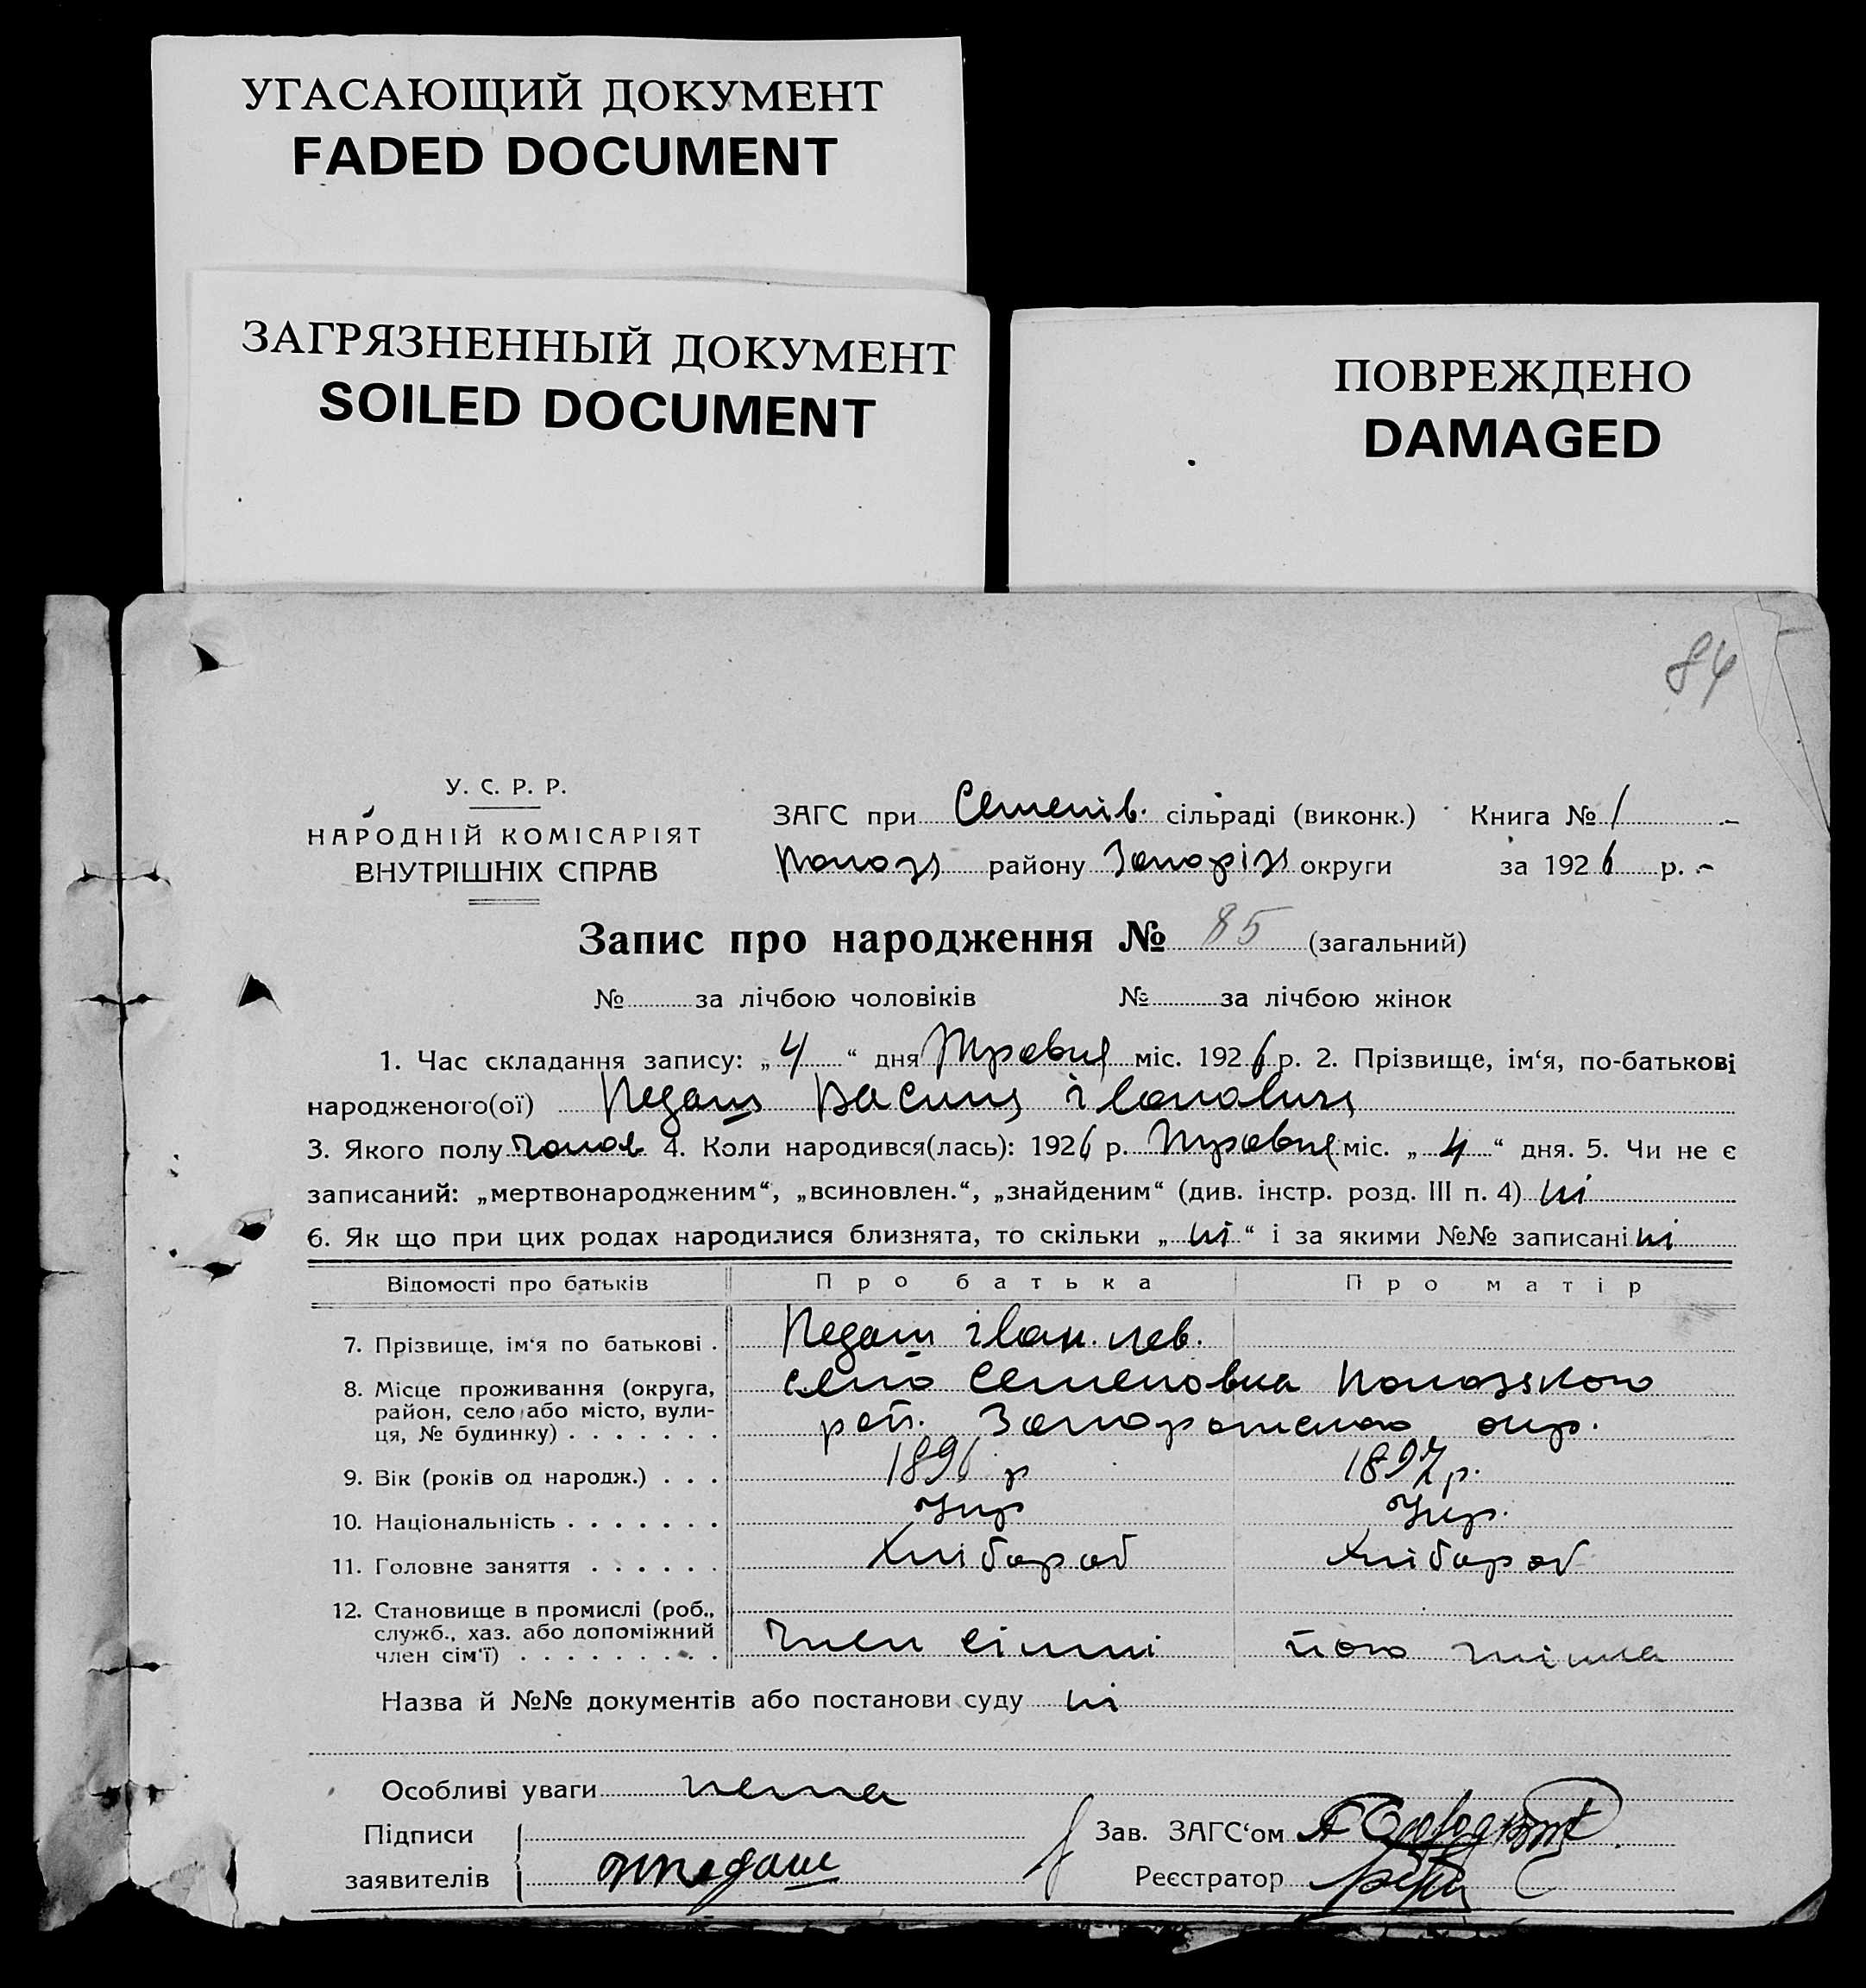 УГАСАЮЩИЙ ДОКУМЕНТ
FADED DOCUMENT
ЗАГРЯЗНЕННЫЙ ДОКУМЕНТ
SOILED DOCUMENT
ПОВРЕЖДЕНО
DAMAGED
84
У. С. Р. Р.
НАРОДНІЙ КОМІСАРІЯТ
ВНУТРІШНІХ СПРАВ
ЗАГС при Семенів. сільраді (виконк.) Книга № 1
району Запоріз округи за 1926 р.
Запис про народження № 85 (загальний)
№ за лічбою чоловіків № за лічбою жінок
1. Час складання запису: „4“ дня Травня міс. 1926 р. 2. Прізвище, ім‘я, по-батькові
народженого(ої) Педаш Василь Іванович
3. Якого полу чолов 4. Коли народився(лась): 1926 р. Травня міс. „4“ дня. 5. Чи не є
записаний: „мертвонародженим“, „всиновлен.“, „знайденим“ (див. інстр. розд. III п. 4) ні
6. Як що при цих родах народилися близнята, то скільки „ні“ і за якими №№ записані ні
Відомості про батьків Про батька Про матір
7. Прізвище, ім‘я по батькові . Педаш Іван. Лев.
8. Місце проживання (округа, район, село або місто, вулиця, № будинку) село Семеновка
рай. окр.
9. Вік (років од народж.) . . . 1896 р 1897 р.
10. Національність . . . . . . . Укр Укр.
11. Головне заняття . . . . . . Хлібороб Хлібороб
12. Становище в промислі (роб.,
служб., хаз. або допоміжний
член сім‘ї) . . . . . . . . . член сімї його жінка
Назва й №№ документів або постанови суду ні
Особливі уваги нема
Підписи
заявителів Педаш
Зав. ЗАГС‘ом
Реєстратор